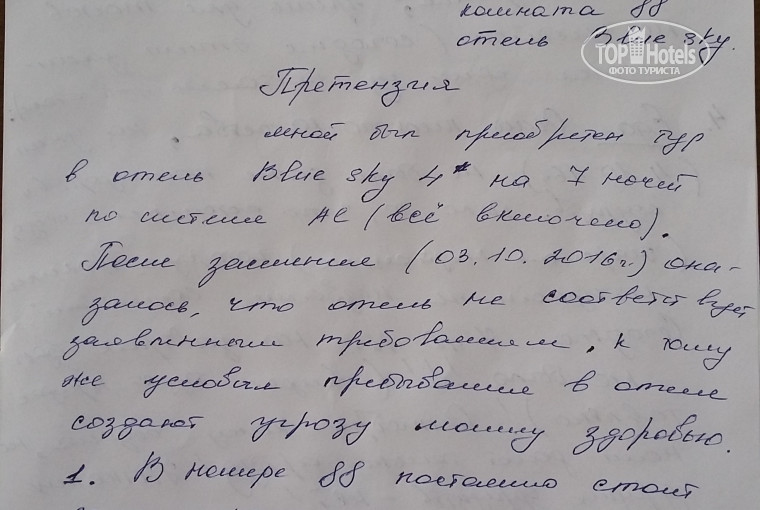 комната 88
отель Blue sky.
TOP Hotels
ФОТО ТУРИСТА
Претензия
мной был приобретен тур
в отель Blue sky 4* на 7 ночей
по системе AL (всё включено).
После заселения (03.10.2016г.) ока-
залось, что отель не соответствует
заявленным требованиям, к тому
же условия пребывания в отеле
создают угрозу моему здоровью.
1. В номере 88 постоянно стоит